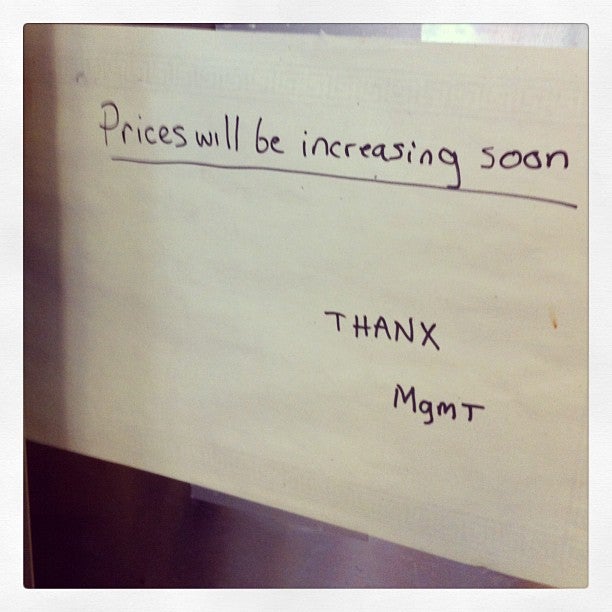 Prices will be increasing soon
THANX
MgmT